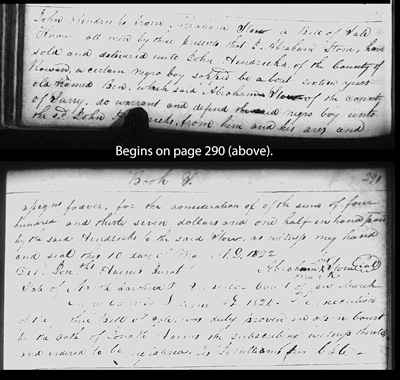 John Hendricks from Abraham Stow a Bill of Sale
Know all men by these presents that I Abraham Stow, have
sold and delivered unto John Hendricks, of the County of
Rowan, a certain negro boy sopposed be about sixteen years
old named Ben, which said Abraham Stow of the County
of Surry, do warrant and defend the said negro boy unto
the sd John from him and his ares and
Begins on page 290 (above).
Book 291
asigns forever, for the consideration of of the sum of four
hundred and thirty seven dollars and one half in hand paid
by the said Hendricks to the said Stow. as witness my hand
and seal this 10 day of A.D. 1822
Abraham Stow
mark
State of North Carolina Court of March
1826 execution
of the within Bill of Sale was duly proven in open Court
by the oath of the subscribing witness thereto
and ordered to be registered.